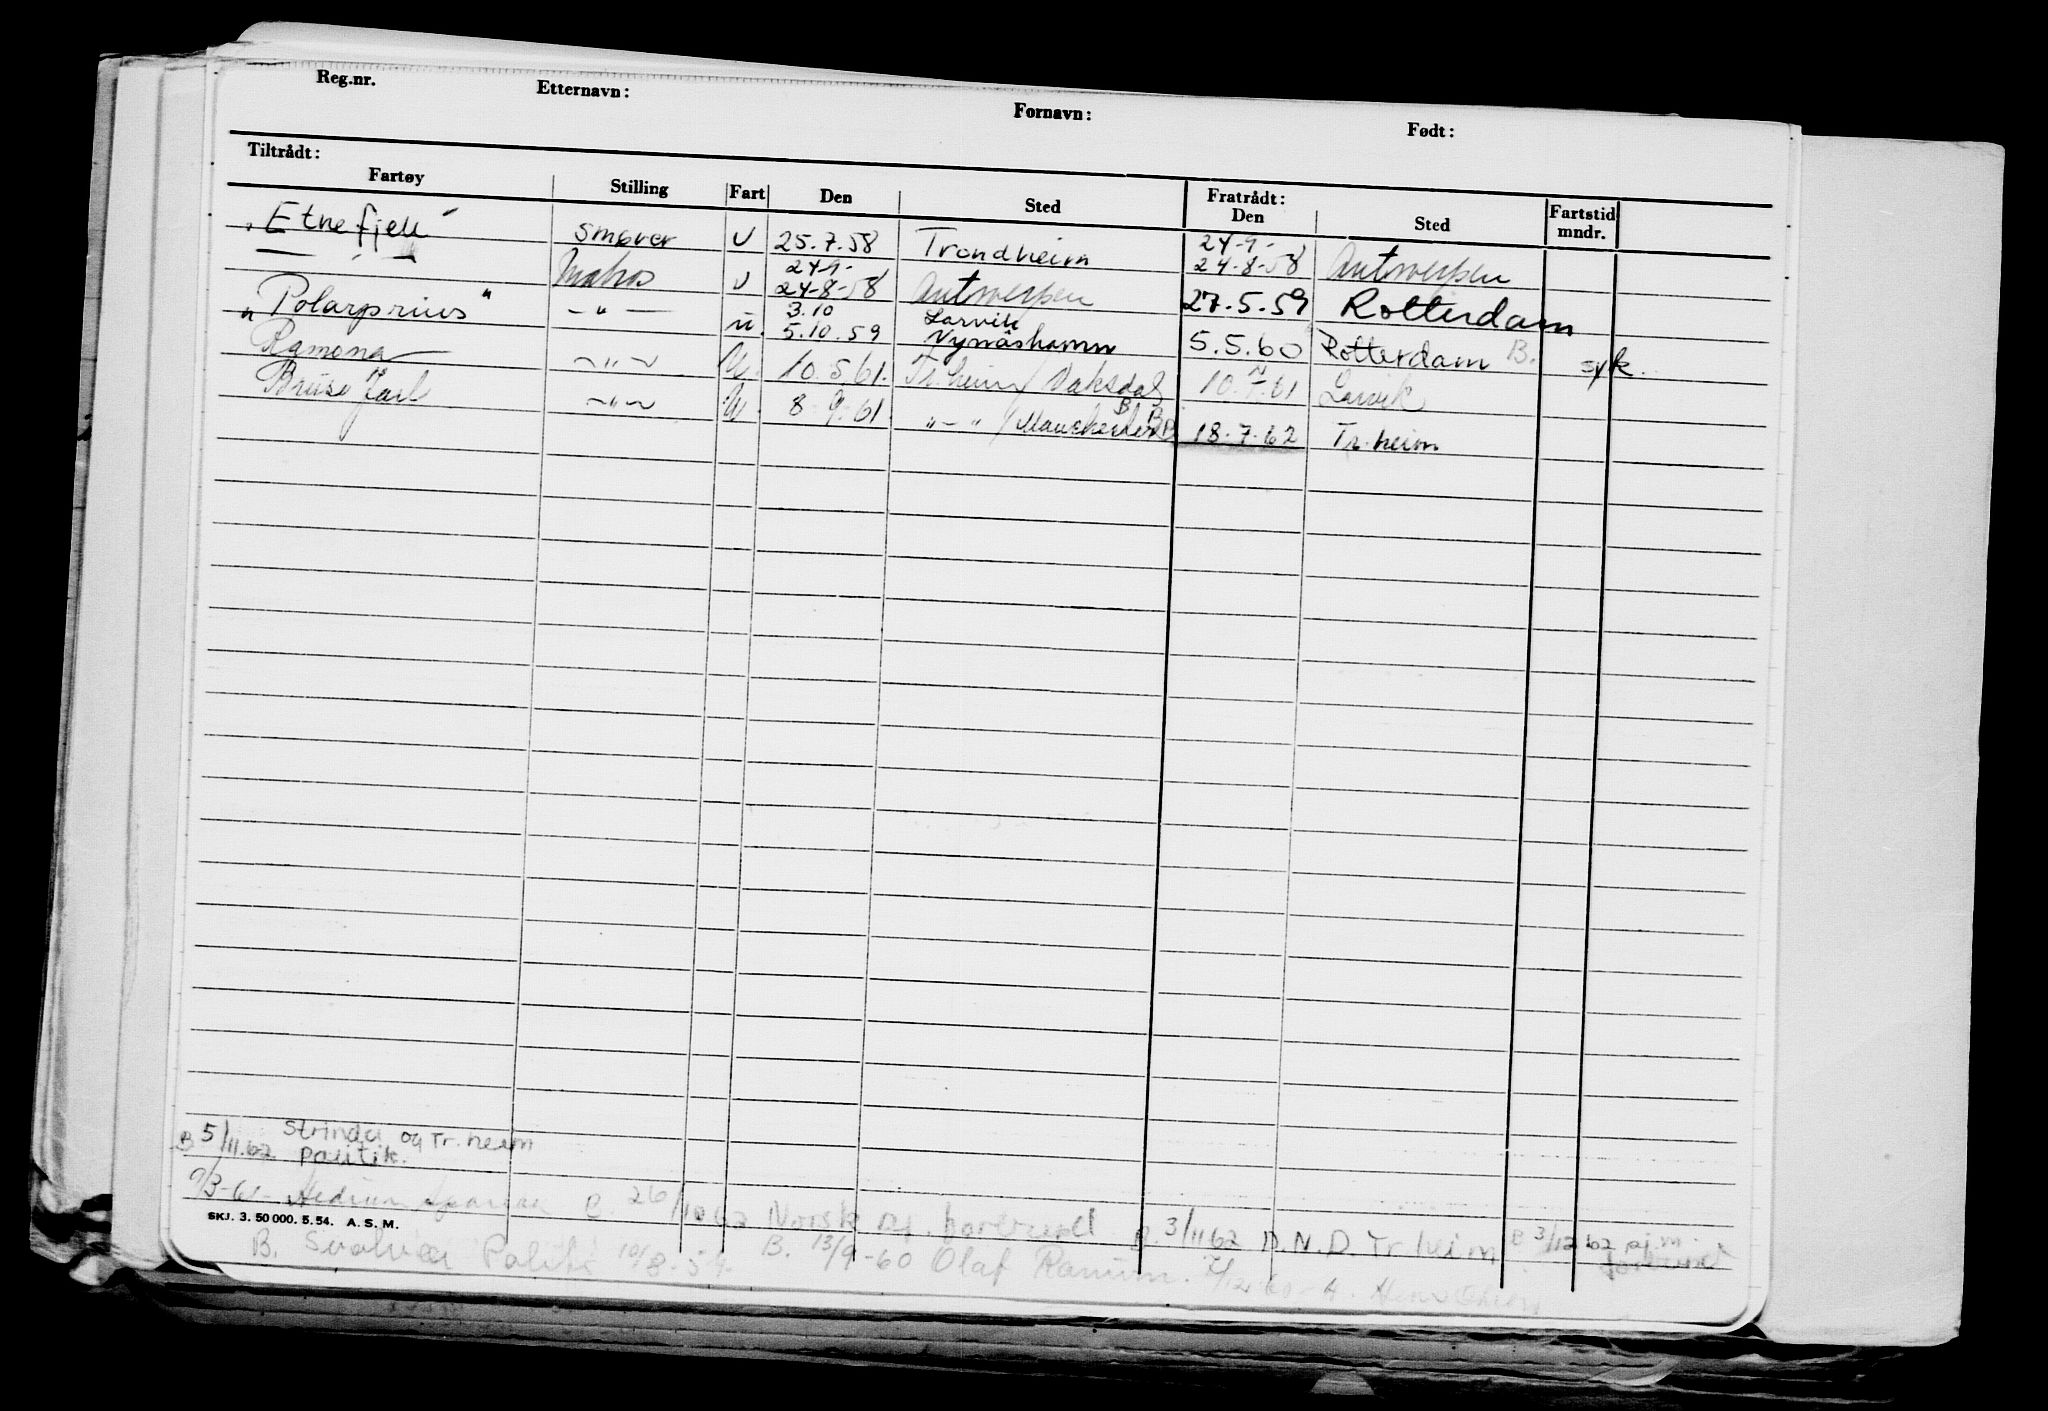 Reg.nr. Etternavn: Fornavn: Født:
Tiltrådt: Fratrådt:
Fartøy Stilling Fart Den Sted Den Sted Fartstid mndr.
"Etnefjell" smører U 25.7.58 Trondheim 24-9- 24-8-58 Antwerpen
— " — Matros U 24-9- 24-8-58 Antwerpen 27.5.59 Rotterdam
"Polarprins" — " — u. 3.10 5.10.59 Larvik Nynäshamn 5.5.60 Rotterdam B. syk.
Ramona — " — U. 10.5.61. Tr.heim / Vaksdal 10.7.61 Larvik
Bruse Jarl — " — U. 8.9.61 " — " / Manchester B B B 18.7.62 Tr.heim
B 5/11.62 Strinda og Tr.heim politik.
9/3-61-
B. 26/10 62 Norsk sj. forbund B. 3/11 62 D.N.D. Tr.heim B 3/12 62 sj.m. forbund
SKJ. 3. 50 000. 5. 54. A. S. M.
B. Svolvær Politi 10/8-59. B. 13/9-60 Olaf